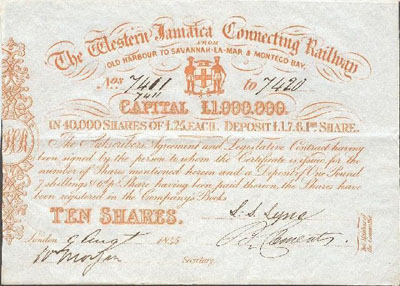 The Western Jamaica Connecting Railway
FROM
OLD HARBOUR TO SAVANNAH-LA-MAR & MONTEGO BAY.
Nos 7411 to 7420
7411
CAPITAL £1,000,000.
IN 40,000 SHARES OF £25, EACH. DEPOSIT £1.7.6. Pr SHARE.
The Subscribers Agreement and Legislative Contract having
been signed by the person to whom this Certificate is issued for the
number of Shares mentioned hereon and a Deposit of One Pound
7 shillings & 6d pr Share having been paid thereon, the Shares have
been registered in the Company's Books
TEN SHARES.
London 9 Augt 1845
Secretary.